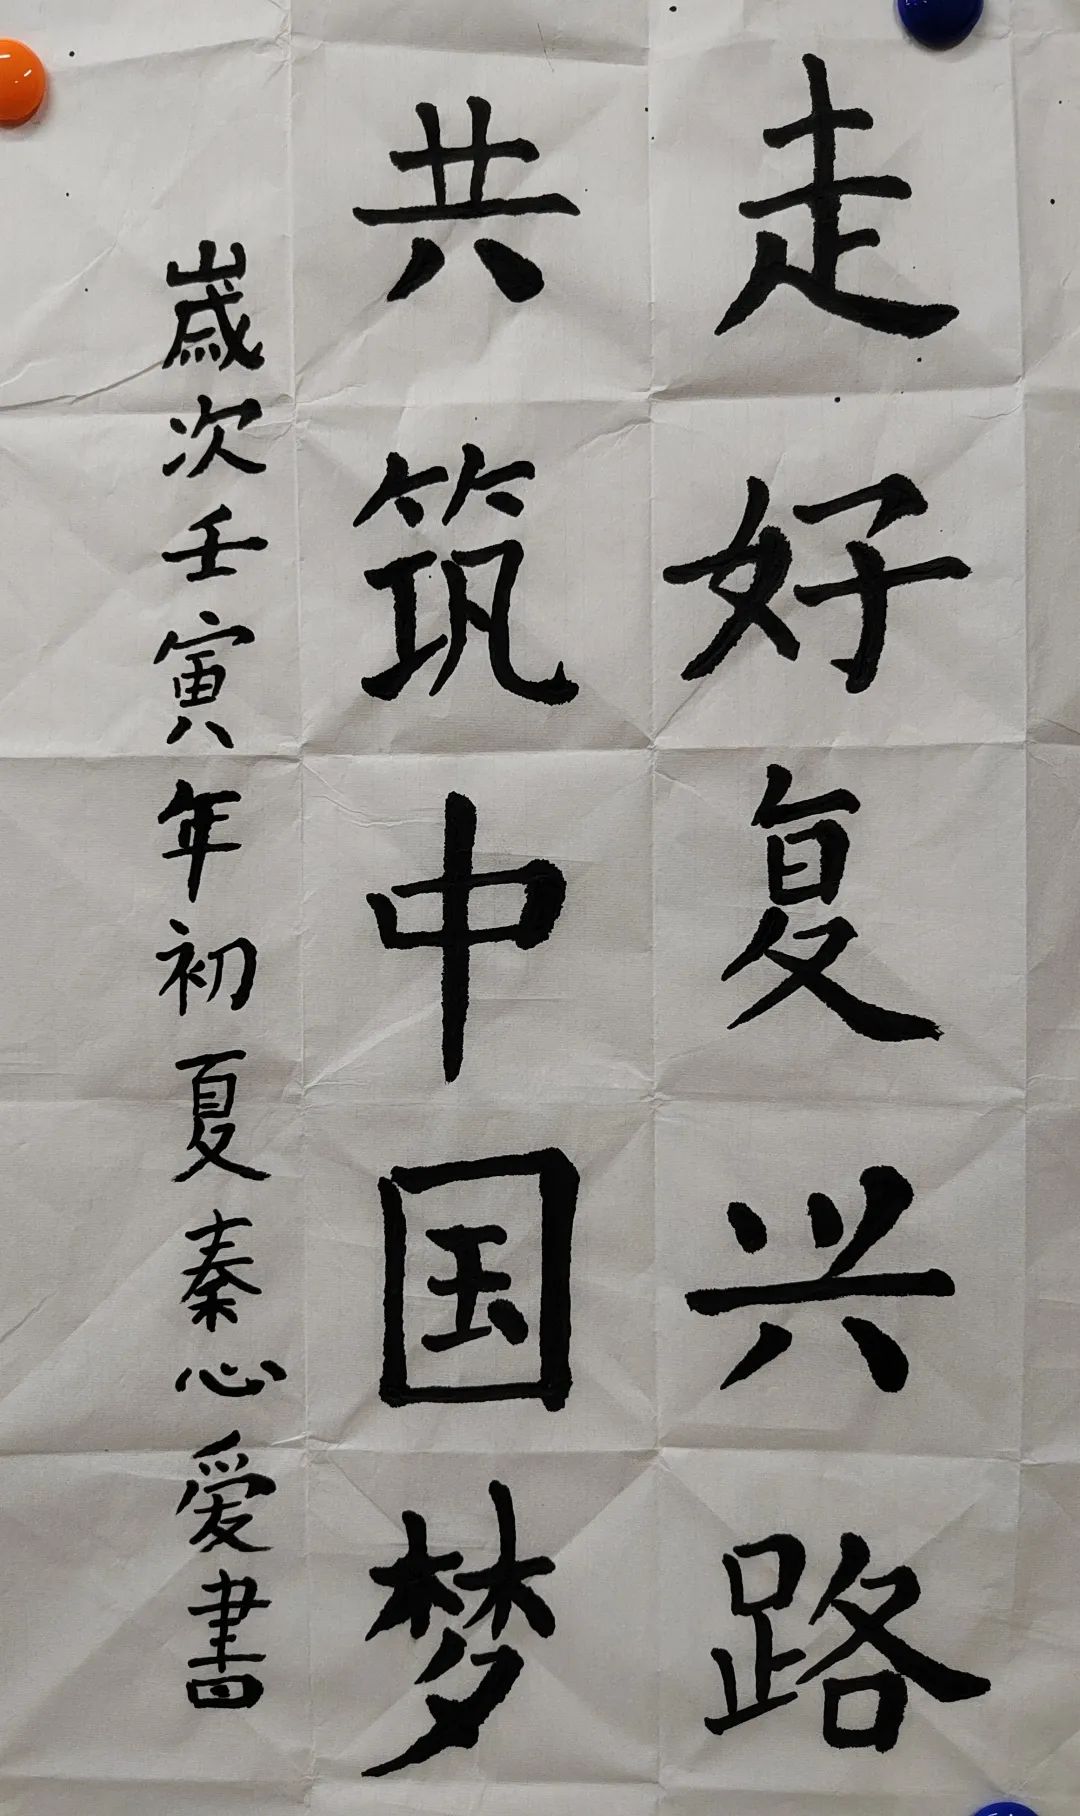 走好复兴路
共筑中国梦
歲次壬寅年初夏秦心爱書